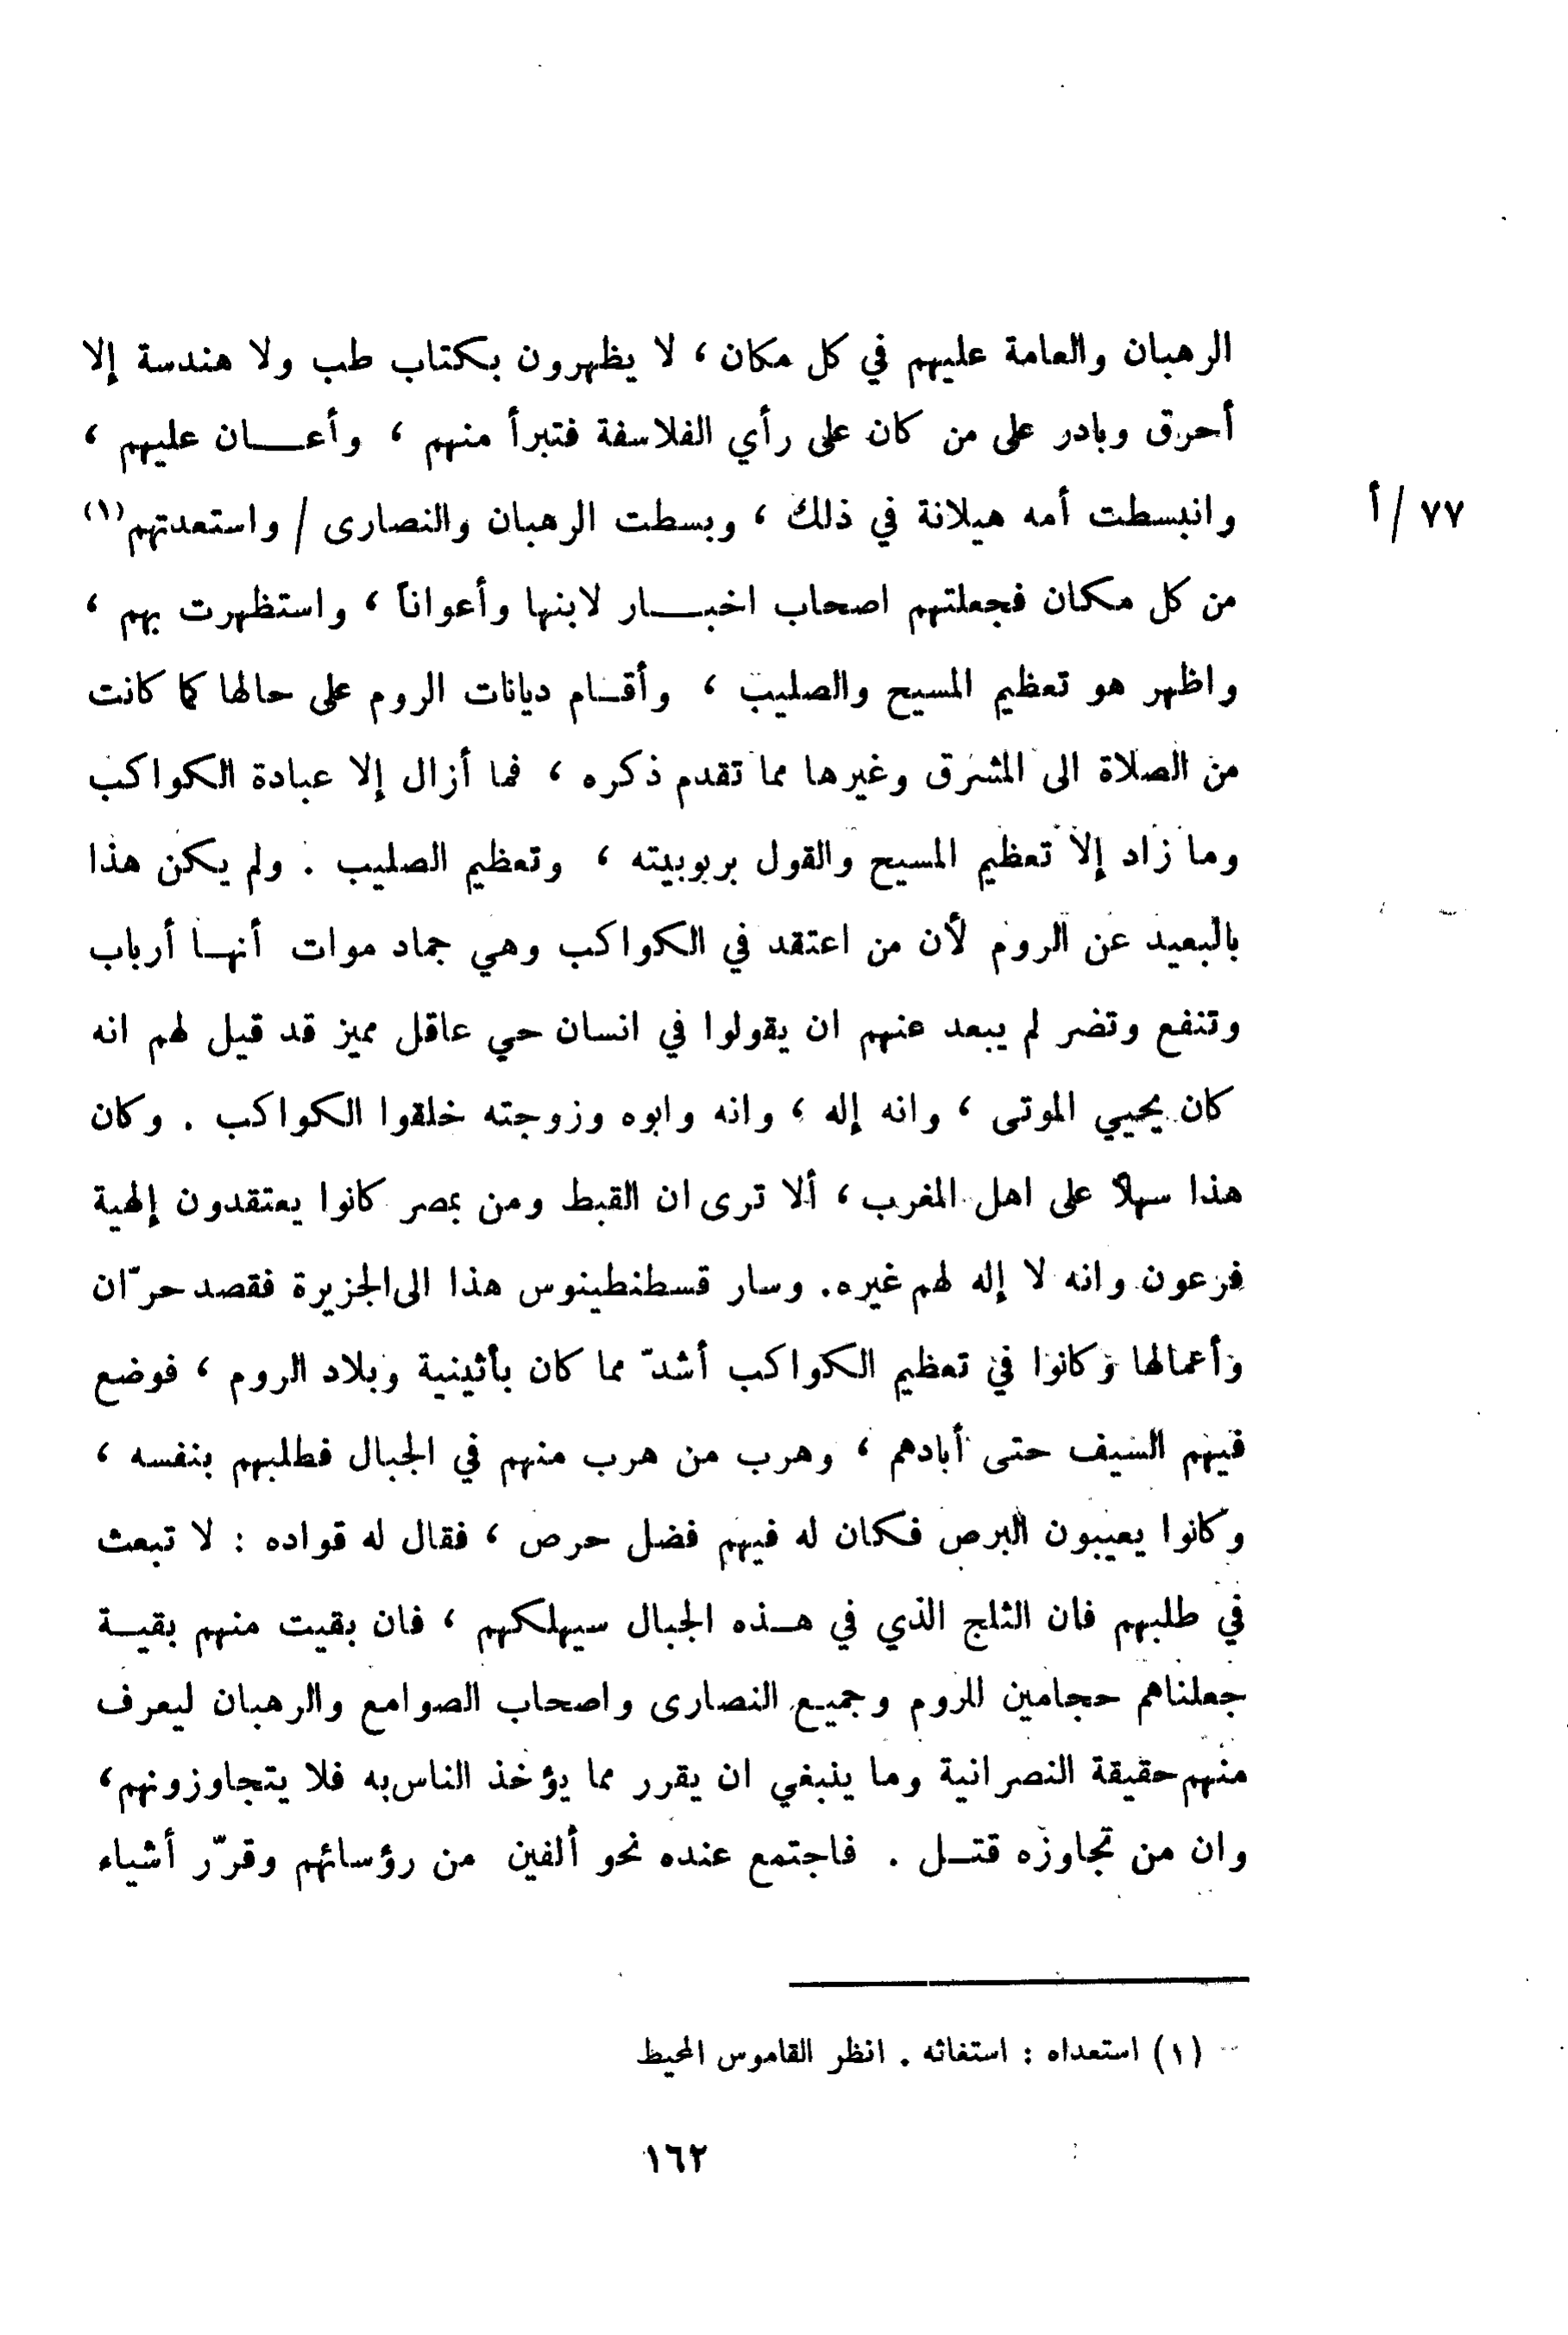 الرهبان والعامة عليهم في كل مكان ، لا يظهرون بكتاب طب ولا هندسة إلا
أحرق وبادر على من كان على رأي الفلاسفة فتبرأ منهم ، وأعـــان عليهم ،
وانبسطت أمه هيلانة في ذلك ، وبسطت الرهبان والنصارى / واستعدتهم(١)
٧٧ /أ
من كل مكان فجعلتهم اصحاب اخبـــار لابنها وأعواناً ، واستظهرت بهم ،
واظهر هو تعظيم المسيح والصليب ، وأقـام ديانات الروم على حالها كما كانت
من الصلاة الى المشرق وغيرها مما تقدم ذكره ، فما أزال إلا عبادة الكواكب
وما زاد إلا تعظيم المسيح والقول بربوبيته ، وتعظيم الصليب . ولم يكن هذا
بالبعيد عن الروم لأن من اعتقد في الكواكب وهي جماد موات أنهـا أرباب
وتنفع وتضر لم يبعد عنهم ان يقولوا في انسان حي عاقل مميز قد قيل لهم انه
كان يحيي الموتى ، وانه إله ، وانه وابوه وزوجته خلقوا الكواكب . وكان
هذا سهلاً على اهل المغرب ، ألا ترى ان القبط ومن بمصر كانوا يعتقدون إلهية
فرعون وانه لا إله لهم غيره. وسار قسطنطينوس هذا الى الجزيرة فقصد حرّان
وأعمالها وكانوا في تعظيم الكواكب أشدّ مما كان بأثينية وبلاد الروم ، فوضع
فيهم السيف حتى أبادهم ، وهرب من هرب منهم في الجبال فطلبهم بنفسه ،
وكانوا يعيبون البرص فكان له فيهم فضل حرص ، فقال له قواده : لا تبعث
في طلبهم فان الثلج الذي في هـذه الجبال سيهلكهم ، فان بقيت منهم بقيـة
جعلناهم حجامين للروم وجميـع النصارى واصحاب الصوامع والرهبان ليعرف
منهم حقيقة النصرانية وما ينبغي ان يقرر مما يؤخذ الناس به فلا يتجاوزونهم،
وان من تجاوزه قتـل . فاجتمع عنده نحو ألفين من رؤسائهم وقرّر أشياء
(١) استعداه : استغاثه . انظر القاموس المحيط
١٦٢